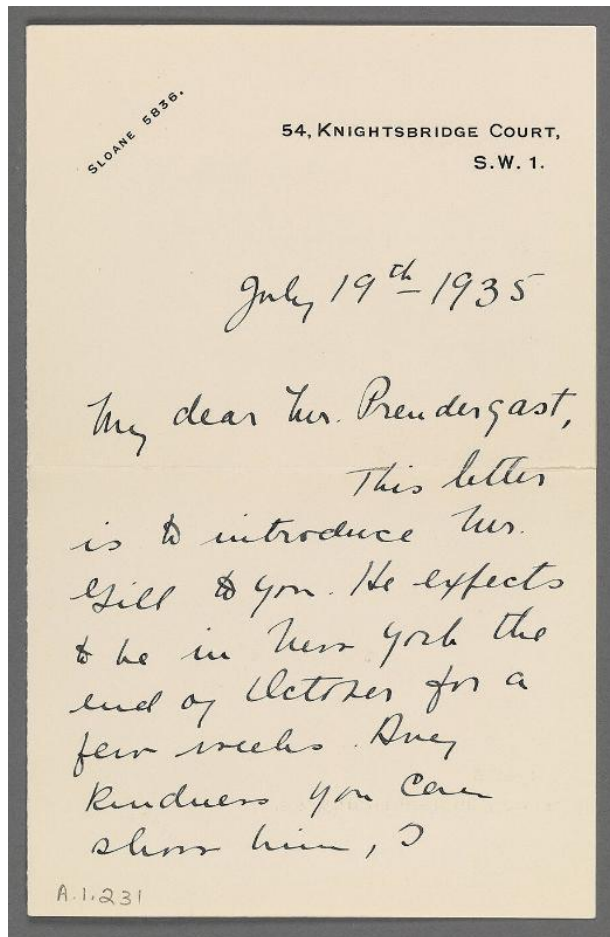 SLOANE 5836.
54, KNIGHTSBRIDGE COURT,
S.W. 1.
July 19th 1935
My dear Mr. Prendergast,
This letter
is to introduce Mr.
Gill to you. He expects
to be in New York the
end of October for a
few weeks. Any
kindness you can
show him, I
A.1.231